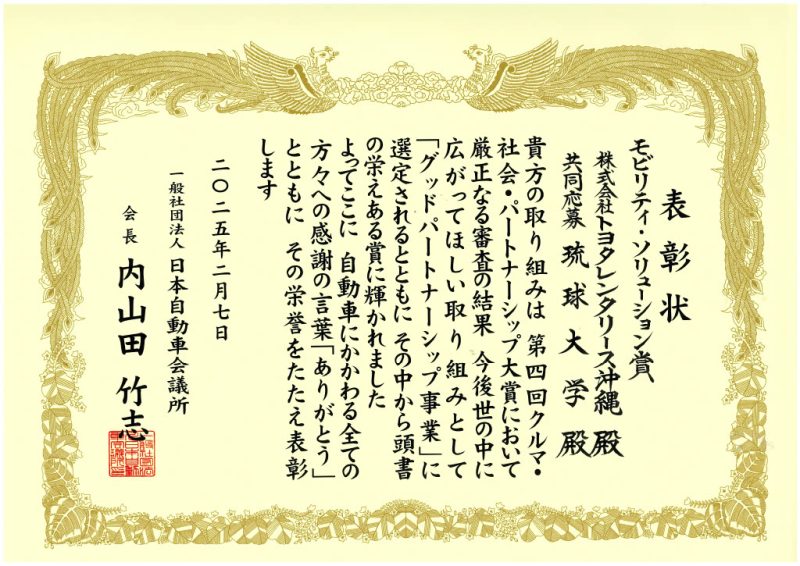 表彰状
モビリティ・ソリューション賞
株式会社トヨタレンタリース沖縄 殿
共同応募 琉球大学 殿
貴方の取り組みは 第四回クルマ・
社会・パートナーシップ大賞において
厳正なる審査の結果 今後世の中に
広がってほしい取り組みとして
「グッドパートナーシップ事業」に
選定されるとともに その中から頭書
の栄えある賞に輝かれました
よってここに 自動車にかかわる全ての
方々への感謝の言葉「ありがとう」
とともに その栄誉をたたえ表彰
します
二〇二五年二月七日
一般社団法人 日本自動車会議所
会長 内山田竹志